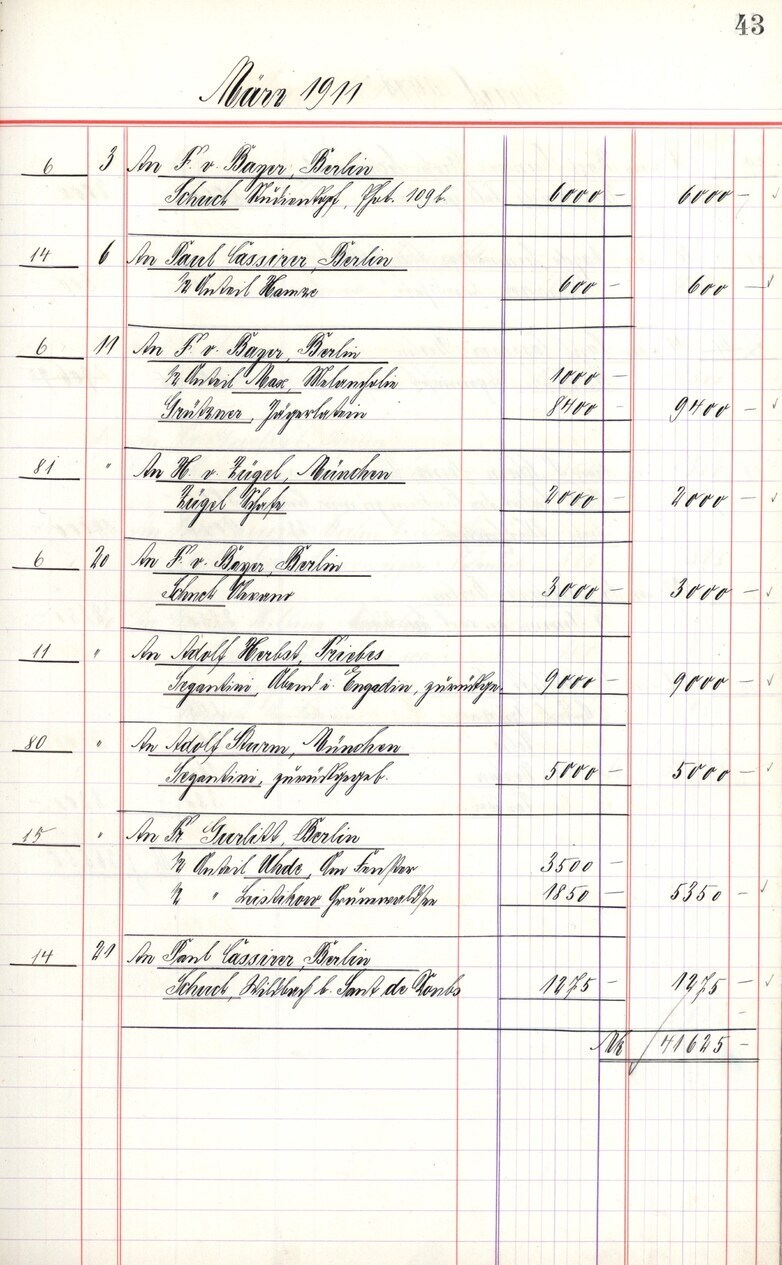 43
März 1911
6 3 An F. v. Bayer, Berlin
Schuch Studienkopf, Phot. 109 b. 6000 — 6000 —
14 6 An Paul Cassirer, Berlin
½ Anteil 600 — 600 —
6 11 An F. v. Bayer, Berlin
½ Anteil Max, Melancholie 1000 —
Grützner, Jägerlatein 8400 — 9400 —
81 " An H. v. Zügel, München
Zügel Schafe 2000 — 2000 —
6 20 An F. v. Bayer, Berlin
Schuch 3000 — 3000 —
11 " An Adolf Herbst,
Segantini, Abend i. Engadin, zurückge. 9000 — 9000 —
80 " An Adolf Sturm, München
Segantini, zurückgegeb. 5000 — 5000 —
15 " An Fr. Gurlitt, Berlin
½ Anteil Uhde, Am Fenster 3500 —
½ " Leistikow Grunewaldsee 1850 — 5350 —
14 21 An Paul Cassirer, Berlin
Schuch, Wildbach b. Saut de Doubs 1275 — 1275 —
Mk 41625 —